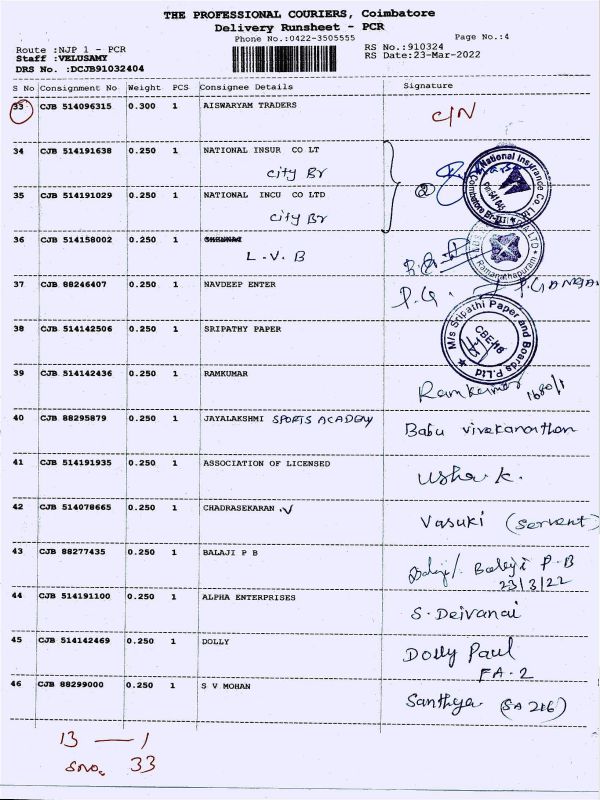 THE PROFESSIONAL COURIERS, Coimbatore
Delivery Runsheet - PCR
Phone No.:0422-3505555 Page No.:4
Route :NJP 1 - PCR RS No.:910324
Staff :VELUSAMY RS Date:23-Mar-2022
DRS No. :DCJB91032404
S No Consignment No Weight PCS Consignee Details Signature
33 CJB 514096315 0.300 1 AISWARYAM TRADERS C/N
34 CJB 514191638 0.250 1 NATIONAL INSUR CO LT
City Br
National Insurance Co. Ltd.
35 CJB 514191029 0.250 1 NATIONAL INCU CO LTD
City Br
②
36 CJB 514158002 0.250 1 CHENNAI
L.V.B
Ramanathapuram
37 CJB 88246407 0.250 1 NAVDEEP ENTER
38 CJB 514142506 0.250 1 SRIPATHY PAPER
M/s Sripathi Paper and Boards P.Ltd
39 CJB 514142436 0.250 1 RAMKUMAR Ramkumar
40 CJB 88295879 0.250 1 JAYALAKSHMI SPORTS ACADEMY Babu vivekananthan
41 CJB 514191935 0.250 1 ASSOCIATION OF LICENSED Usha.K.
42 CJB 514078665 0.250 1 CHADRASEKARAN .V Vasuki (Servent)
43 CJB 88277435 0.250 1 BALAJI P B Balaji P.B
23/3/22
44 CJB 514191100 0.250 1 ALPHA ENTERPRISES S. Deivanai
45 CJB 514142469 0.250 1 DOLLY Dolly Paul
FA-2
46 CJB 88299000 0.250 1 S V MOHAN Santhya (SA 216)
13 — 1
Sno. 33